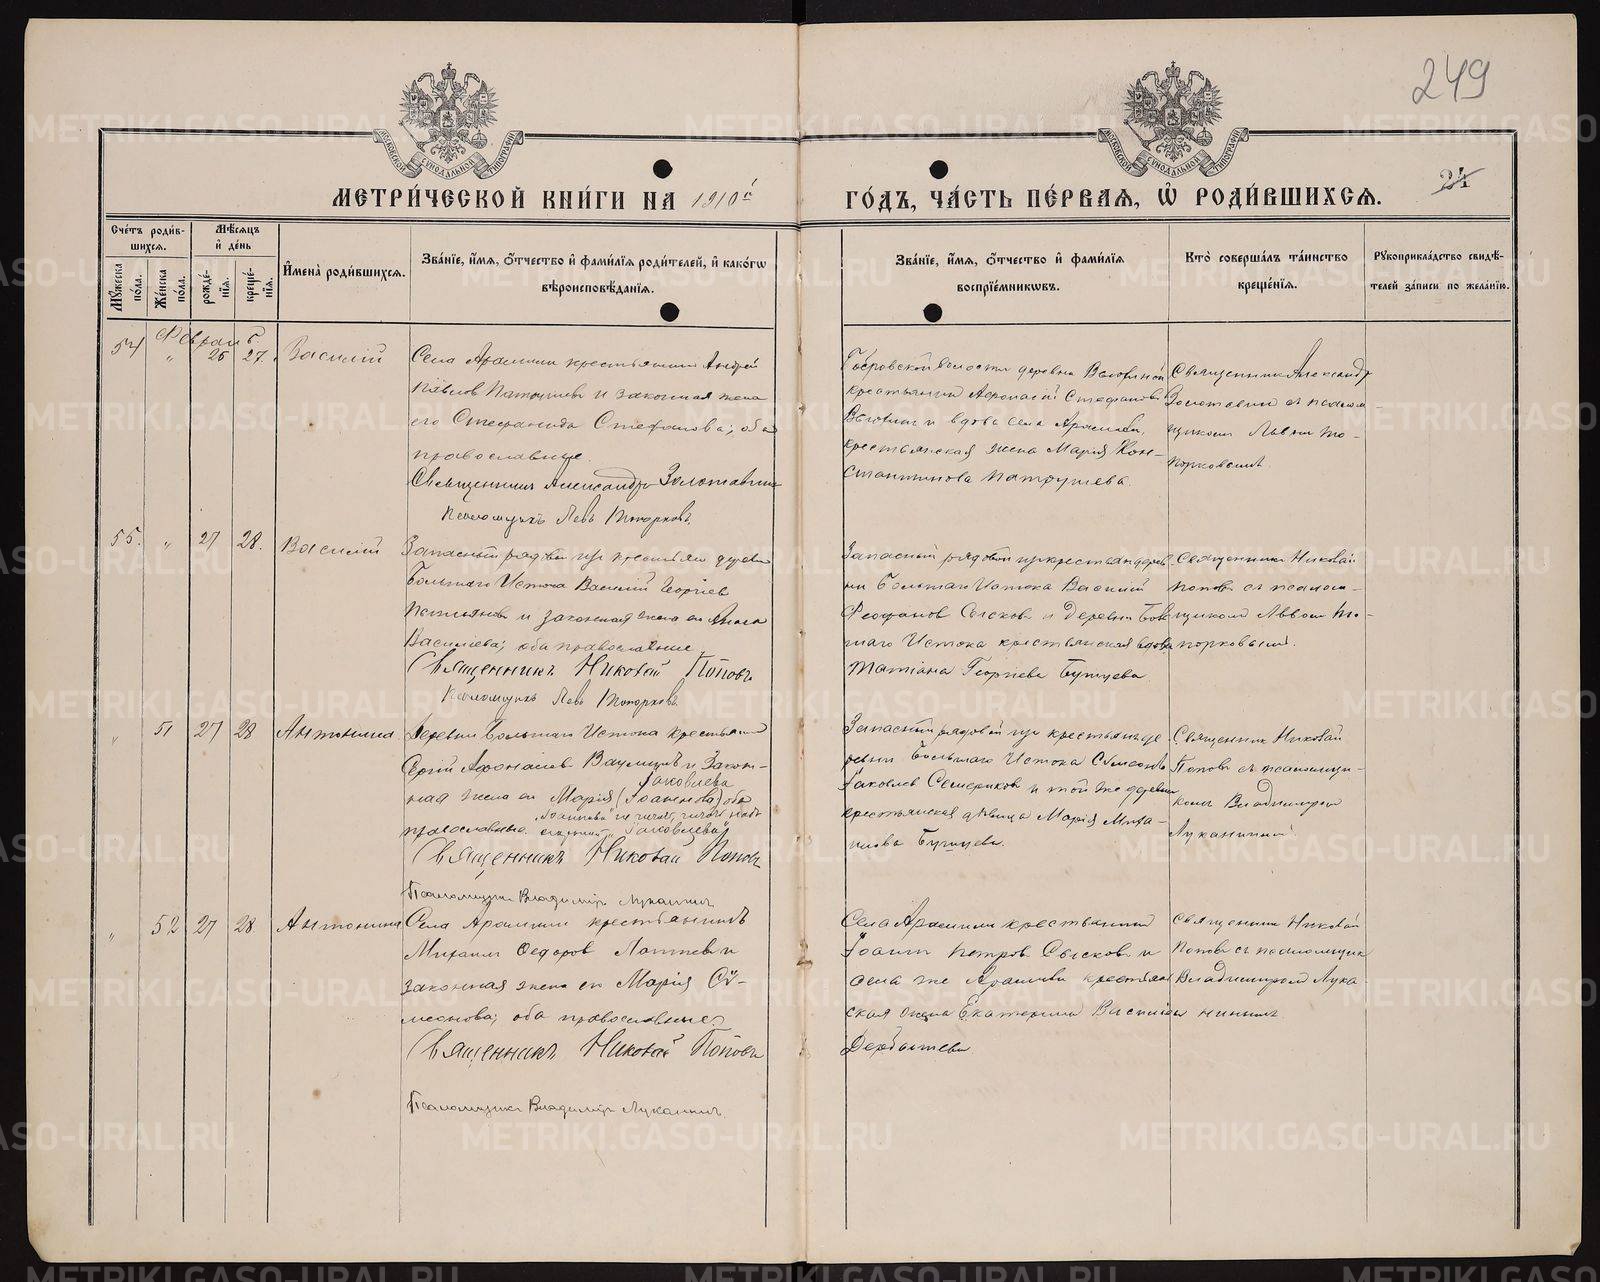 249
24
МОСКОВСКОЙ СѴНОДАЛЬНОЙ ТИПОГРАФІИ
МОСКОВСКОЙ СѴНОДАЛЬНОЙ ТИПОГРАФІИ
МЕТРИ́ЧЕСКОЙ КНИ́ГИ НА 1910й
ГО́ДЪ, ЧА́СТЬ ПЕ́РВАЯ, Ѡ҆ РОДИ́ВШИХСЯ.
Сче́тъ роди́в-
шихся.
Мѣ́сяцъ
и҆ де́нь
Мꙋ́жеска по́ла.
Же́нска по́ла.
рожде́-
нїя.
креще́-
нїя.
И҆мена̀ роди́вшихся.
Зва́нїе, и҆́мя, ѻ҆́тчество и҆ фами́лїя роди́телей, и҆ како́гѡ
вѣроисповѣ́данїя.
Зва́нїе, и҆́мя, ѻ҆́тчество и҆ фами́лїя
воспрїе́мникѡвъ.
Кто̀ соверша́лъ та́инство
креще́нїя.
Рꙋкоприкла́дство свидѣ́-
телей за́писи по жела́нїю.
Февраль
54 " 26 27. Василій
Села Арамили крестьянинъ Андрей
Павлов Патрушев и законная жена
его Стефанида Стефанова; оба
православные.
Священникъ Александръ Золотавинъ
Псаломщикъ Левъ Топорковъ.
волости деревни
крестьянинъ Афанасій Стефанов
и вдова села Арамили,
крестьянская жена Марія Кон-
стантинова Патрушева.
Священник Александр
Золотавин съ псалом-
щиком Львом То-
порковымъ.
55. " 27 28. Василій
Запасный рядовой из крестьян деревни
Большаго Истока Василій Георгіев
и законная жена его Анна
Василіева; оба православные
Священникъ Николай Поповъ
Псаломщикъ Левъ Топорковъ
Запасный рядовой из крестьян дерев-
ни Большаго Истока Василій
Феофанов Сысков и деревни Боль-
шаго Истока крестьянская вдова
Татіана Георгіева
Священник Николай
Попов съ псалом-
щиком Львом То-
порковым.
" 51 27 28 Антонина
Деревни Большаго Истока крестьянин
Сергій Афонасіев и закон-
Іаковлева
ная жена его Марія (Іоаннова) оба
"Іоаннова" не читать, читать надъ
православные. "Іаковлева"
Священникъ Николай Поповъ
Псаломщик Владимір Луканинъ
Запасный рядовой из крестьян де-
ревни Большаго Истока Сѵмеонъ
Іаковлев и той же деревни
крестьянская дѣвица Марія Миха-
илова
Священник Николай
Попов съ псаломщи-
комъ Владиміром
Луканиным
" 52 27 28. Антонина
Села Арамили крестьянинъ
Михаил Федоров Лаптев и
законная жена его Марія Сѵ-
меонова; оба православные.
Священникъ Николай Поповъ
Псаломщикъ Владимір Луканинъ.
Села Арамили крестьянин
Іоанн Петров Сысков и
села же Арамили крестьян-
ская Екатерина Василіева
Священник Николай
Попов съ псаломщик
Владиміром Лука-
нинымъ
METRIKI.GASO-URAL.RU